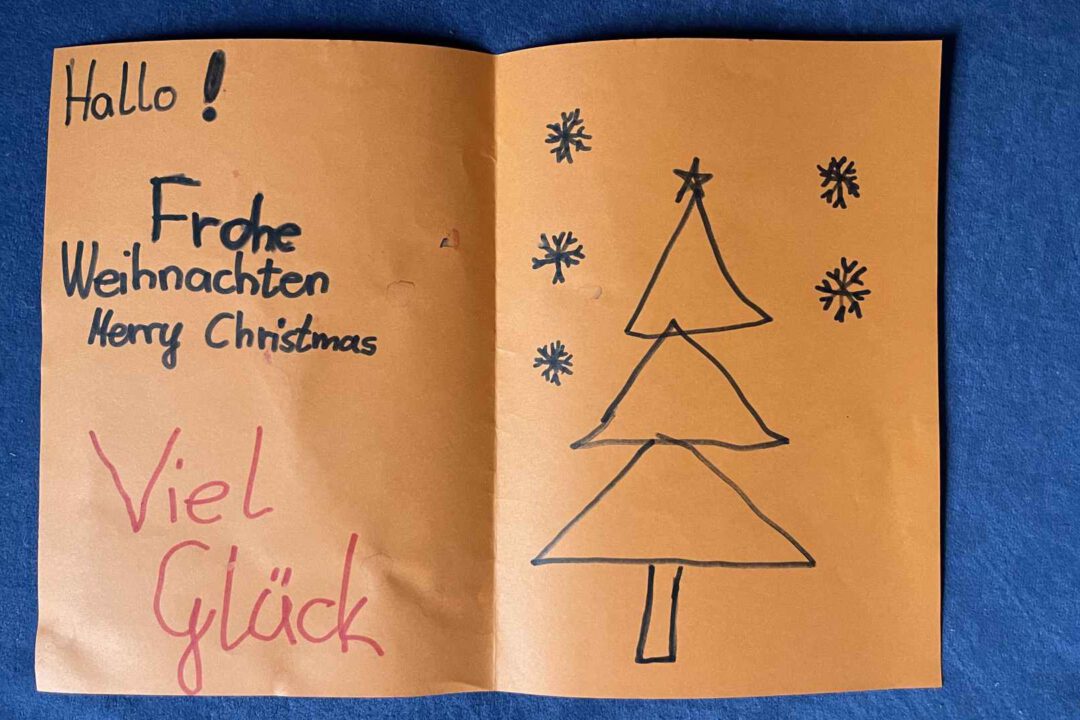 Hallo!
Frohe
Weihnachten
Merry Christmas
Viel
Glück